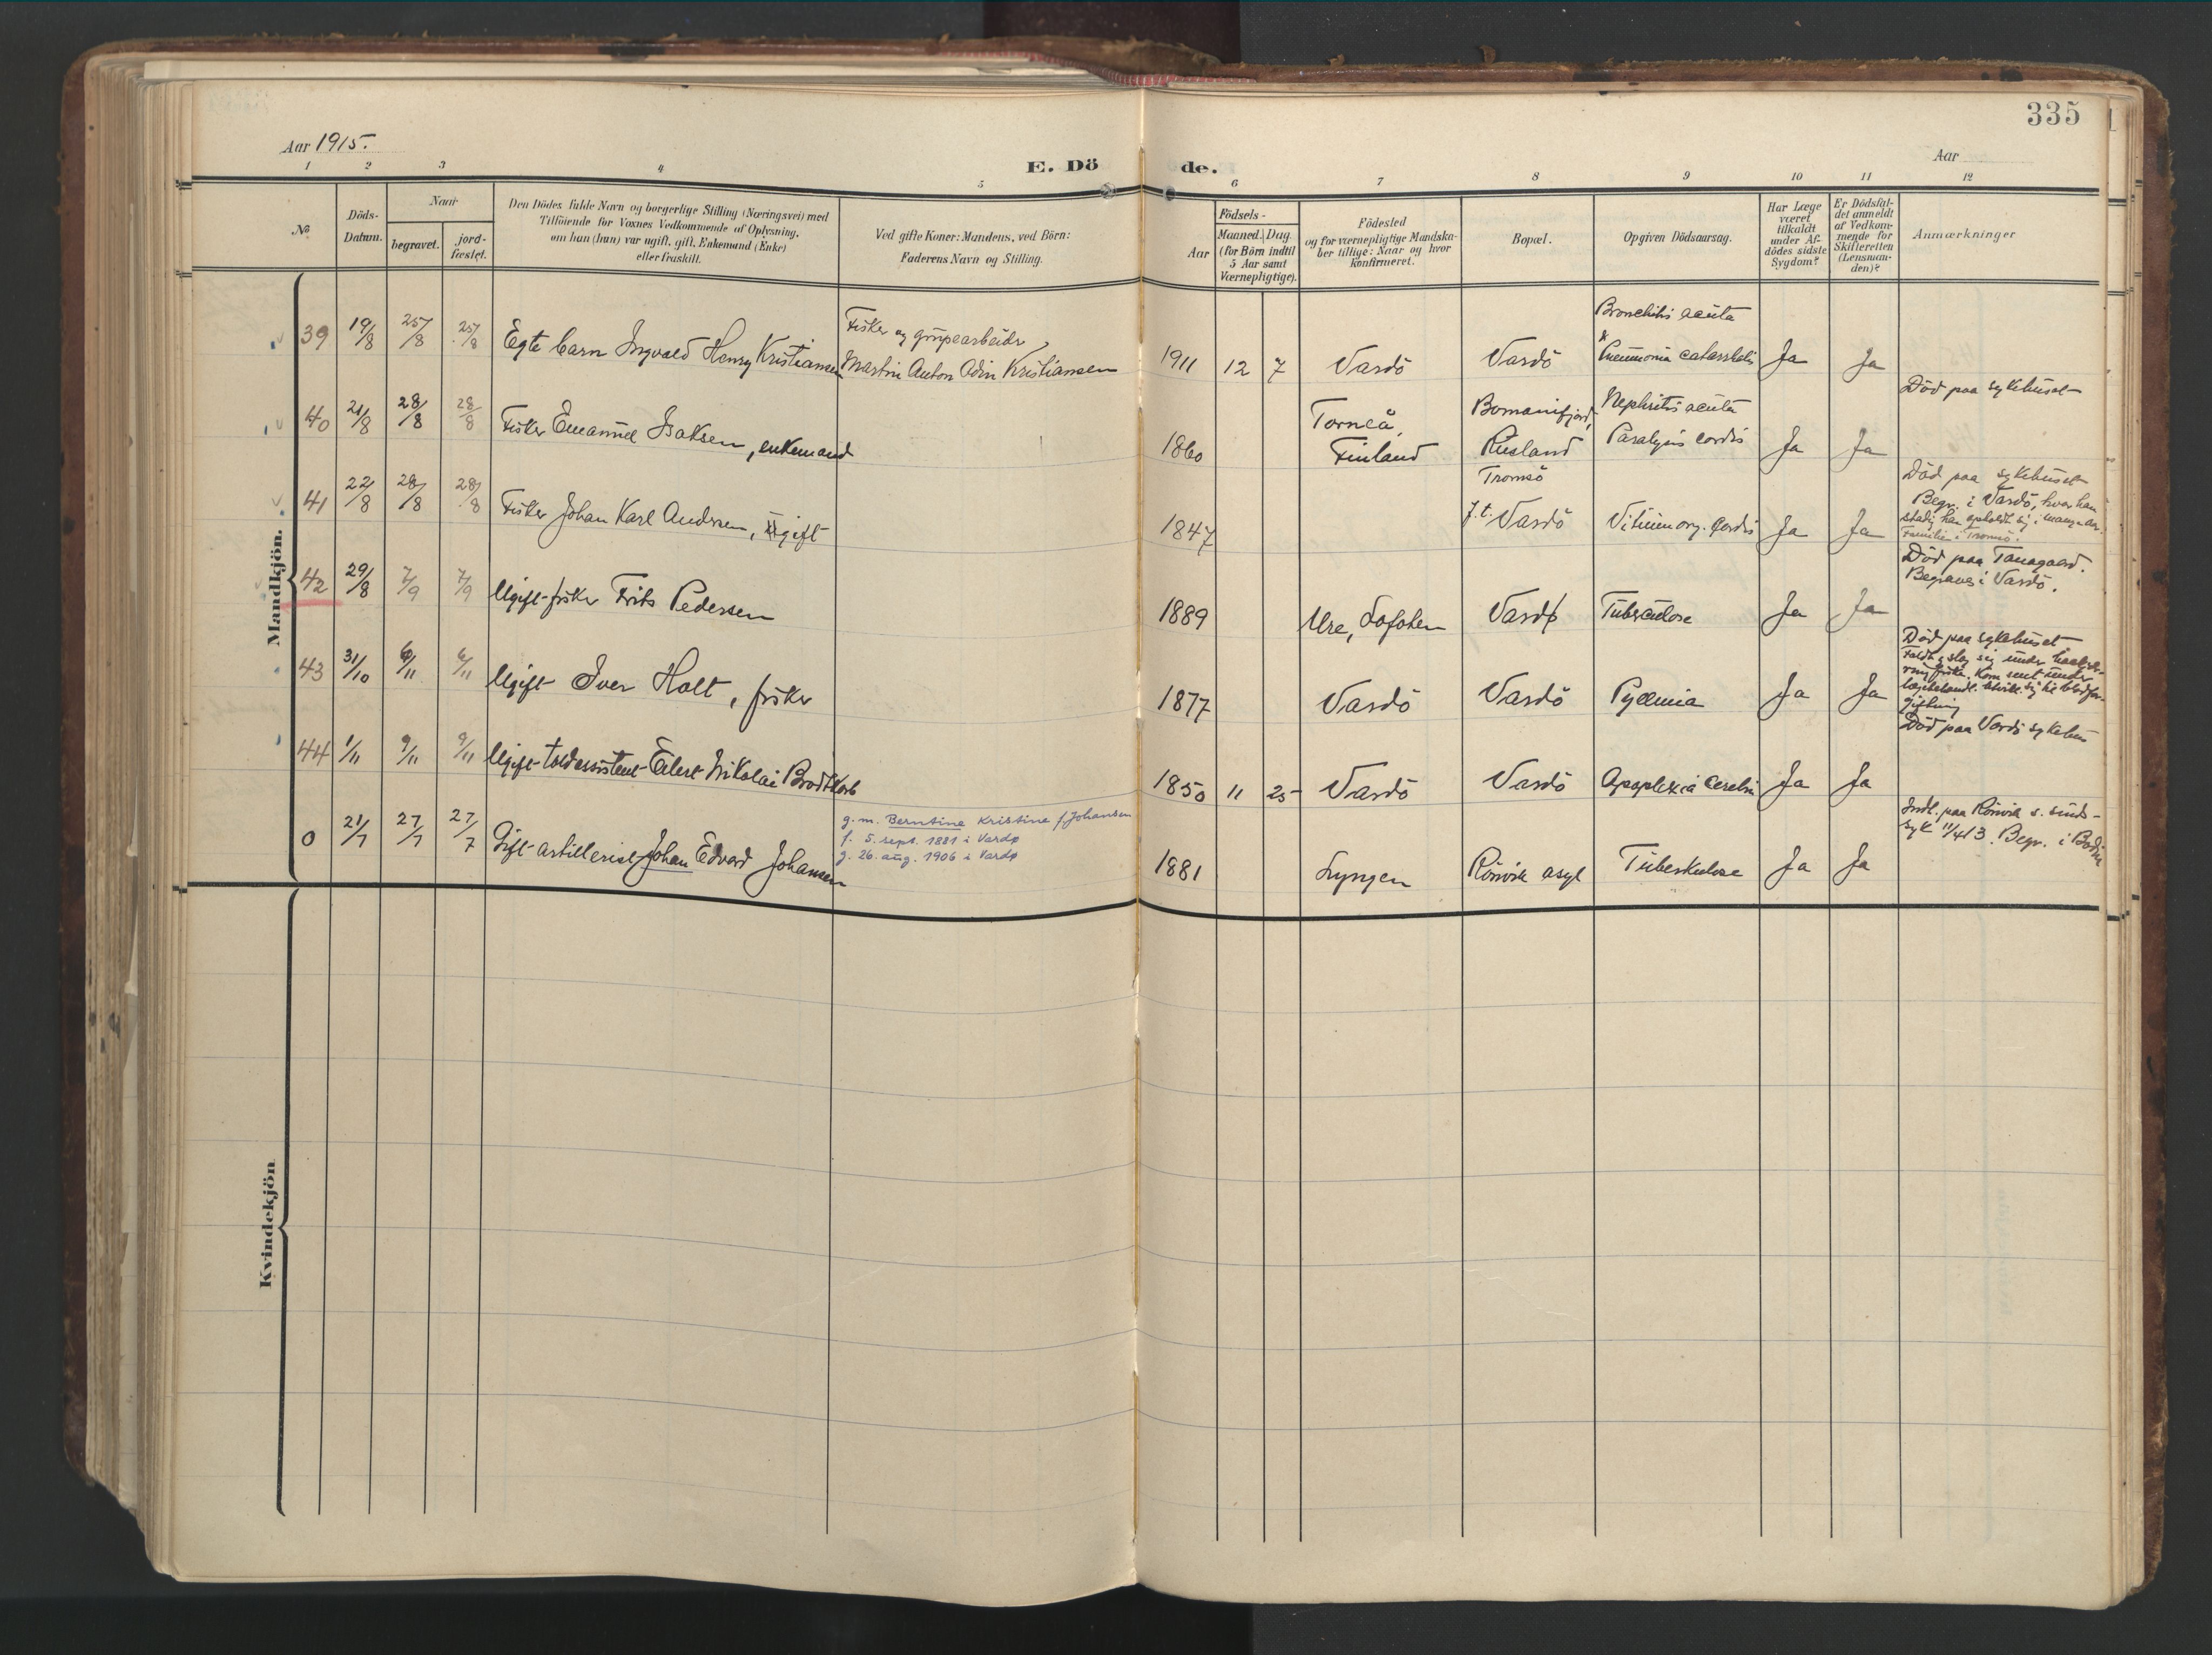 335
Aar 1915.
Aar
E. Dö de.
1 2 3 4 5 6 7 8 9 10 11 12
No
Döds-
Datum.
Naar
begravet.
jord-
fæstet.
Den Dödes fulde Navn og borgerlige Stilling (Næringsvei) med
Tilföiende for Voxnes Vedkommende af Oplysning,
om han (hun) var ugift, gift, Enkemand (Enke)
eller fraskilt.
Ved gifte Koner: Mandens, ved Börn:
Faderens Navn og Stilling.
Födsels-
Aar
Maaned. Dag
(for Börn indtil
5 Aar samt
Værnepligtige).
Födested
og for værnepligtige Mandska-
ber tillige: Naar og hvor
konfirmeret.
Bopæl.
Opgiven Dödsaarsag.
Har Læge
været
tilkaldt
under Af-
dödes sidste
Sygdom?
Er Dödsfal-
det anmeldt
af Vedkom-
mende for
Skifteretten
(Lensman-
den)?
Anmærkninger
Mandkjön.
39 19/8 25/8 25/8 Egte barn Ingvald Henry Kristiansen
Fisker og grupearbeider
Martin Anton Odin Kristiansen
1911 12 7 Vardö Vardö
Bronchitis acuta
& Pneumonia catarrhalis
Ja Ja
40 21/8 28/8 28/8 Fisker Emanuel Isaksen, enkemand
1860
Torneå,
Finland
Bomanifjord,
Rusland
Nephritis acuta
Paralysis cordis
Ja Ja
Död paa sykehuset
41 22/8 28/8 28/8 Fisker Johan Karl Andersen, gift
1847
Tromsö
f.t. Vardö
Vitium org. Cordis
Ja Ja
Död paa sykehuset
Begr. i Vardö, hvor han
stadig har opholdt sig i mange aar.
Familie i Tromsö.
42 29/8 7/9 7/9 Ugift fisker Frits Pedersen
1889 Ure, Lofoten Vardø Tuberculose Ja Ja
Död paa Tanagaard.
Begraves i Vardö.
43 31/10 6/11 6/11 Ugift Iver Holt, fisker
1877 Vardö Vardö Pyæmia Ja Ja
Död paa sykehuset
44 1/11 9/11 9/11 Ugift toldassistent Eilert Nikolai Brodtkorb
1850 11 25 Vardö Vardö Apoplexia cerebri Ja Ja
Död paa Vardö sykehus
0 21/7 27/7 27/7 Gift artillerist Johan Edvard Johansen
g.m. Berntine Kristine f. Johansen
f. 5. sept. 1881 i Vardø
g. 26. aug. 1906 i Vardø
1881 Lyngen Rönvik asyl Tuberkulose Ja Ja
Indl. paa Rönvik s. sinds-
syk 11/4 13. Begr. i Bodin
Kvindekjön